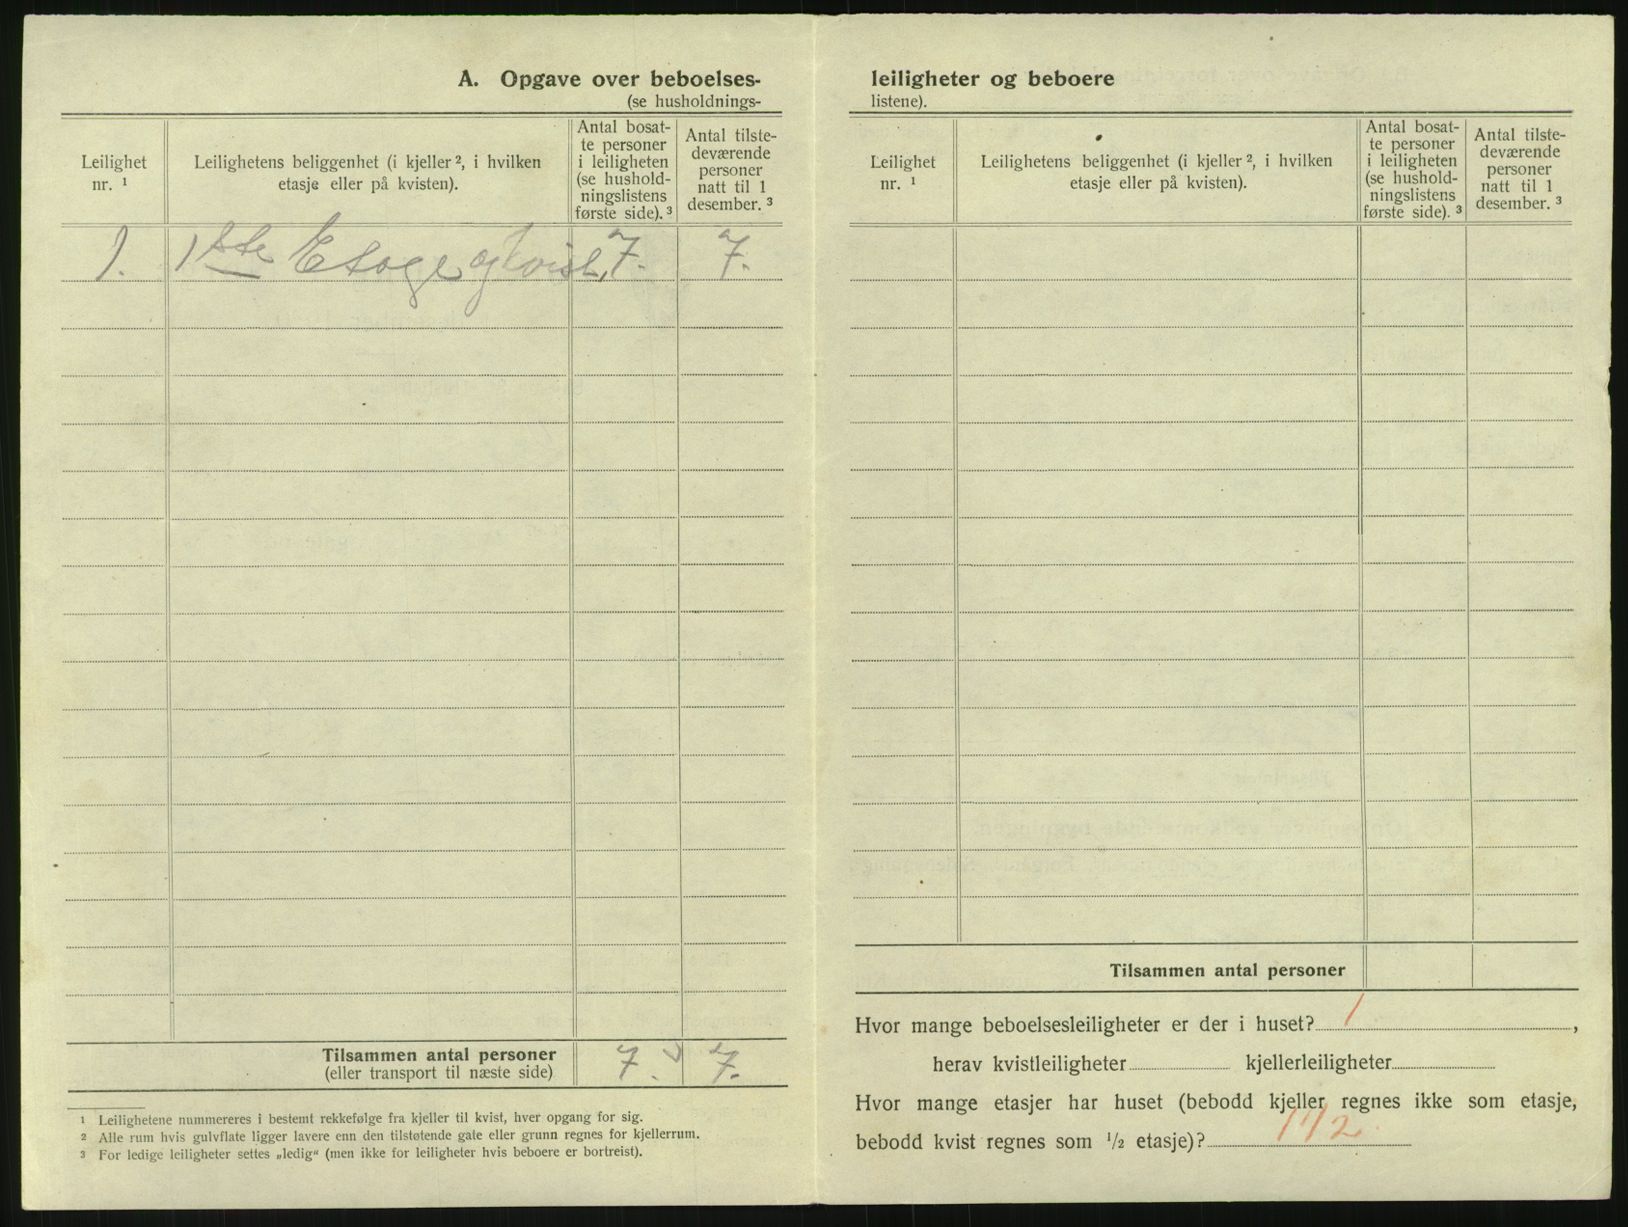 A. Opgave over beboelses-
(se husholdnings-
Leilighet
nr. ¹
Leilighetens beliggenhet (i kjeller ², i hvilken
etasje eller på kvisten).
Antal bosat-
te personer
i leiligheten
(se hushold-
ningslistens
første side). ³
Antal tilste-
deværende
personer
natt til 1
desember. ³
1. 1ste Etage og kvist, 7. 7.
Tilsammen antal personer 7. 7.
(eller transport til næste side)
¹ Leilighetene nummereres i bestemt rekkefølge fra kjeller til kvist, hver opgang for sig.
² Alle rum hvis gulvflate ligger lavere enn den tilstøtende gate eller grunn regnes for kjellerrum.
³ For ledige leiligheter settes „ledig“ (men ikke for leiligheter hvis beboere er bortreist).
leiligheter og beboere
listene).
Leilighet
nr. ¹
Leilighetens beliggenhet (i kjeller ², i hvilken
etasje eller på kvisten).
Antal bosat-
te personer
i leiligheten
(se hushold-
ningslistens
første side). ³
Antal tilste-
deværende
personer
natt til 1
desember. ³
Tilsammen antal personer
Hvor mange beboelsesleiligheter er der i huset? 1,
herav kvistleiligheter kjellerleiligheter
Hvor mange etasjer har huset (bebodd kjeller regnes ikke som etasje,
bebodd kvist regnes som ½ etasje)? 1 1/2.